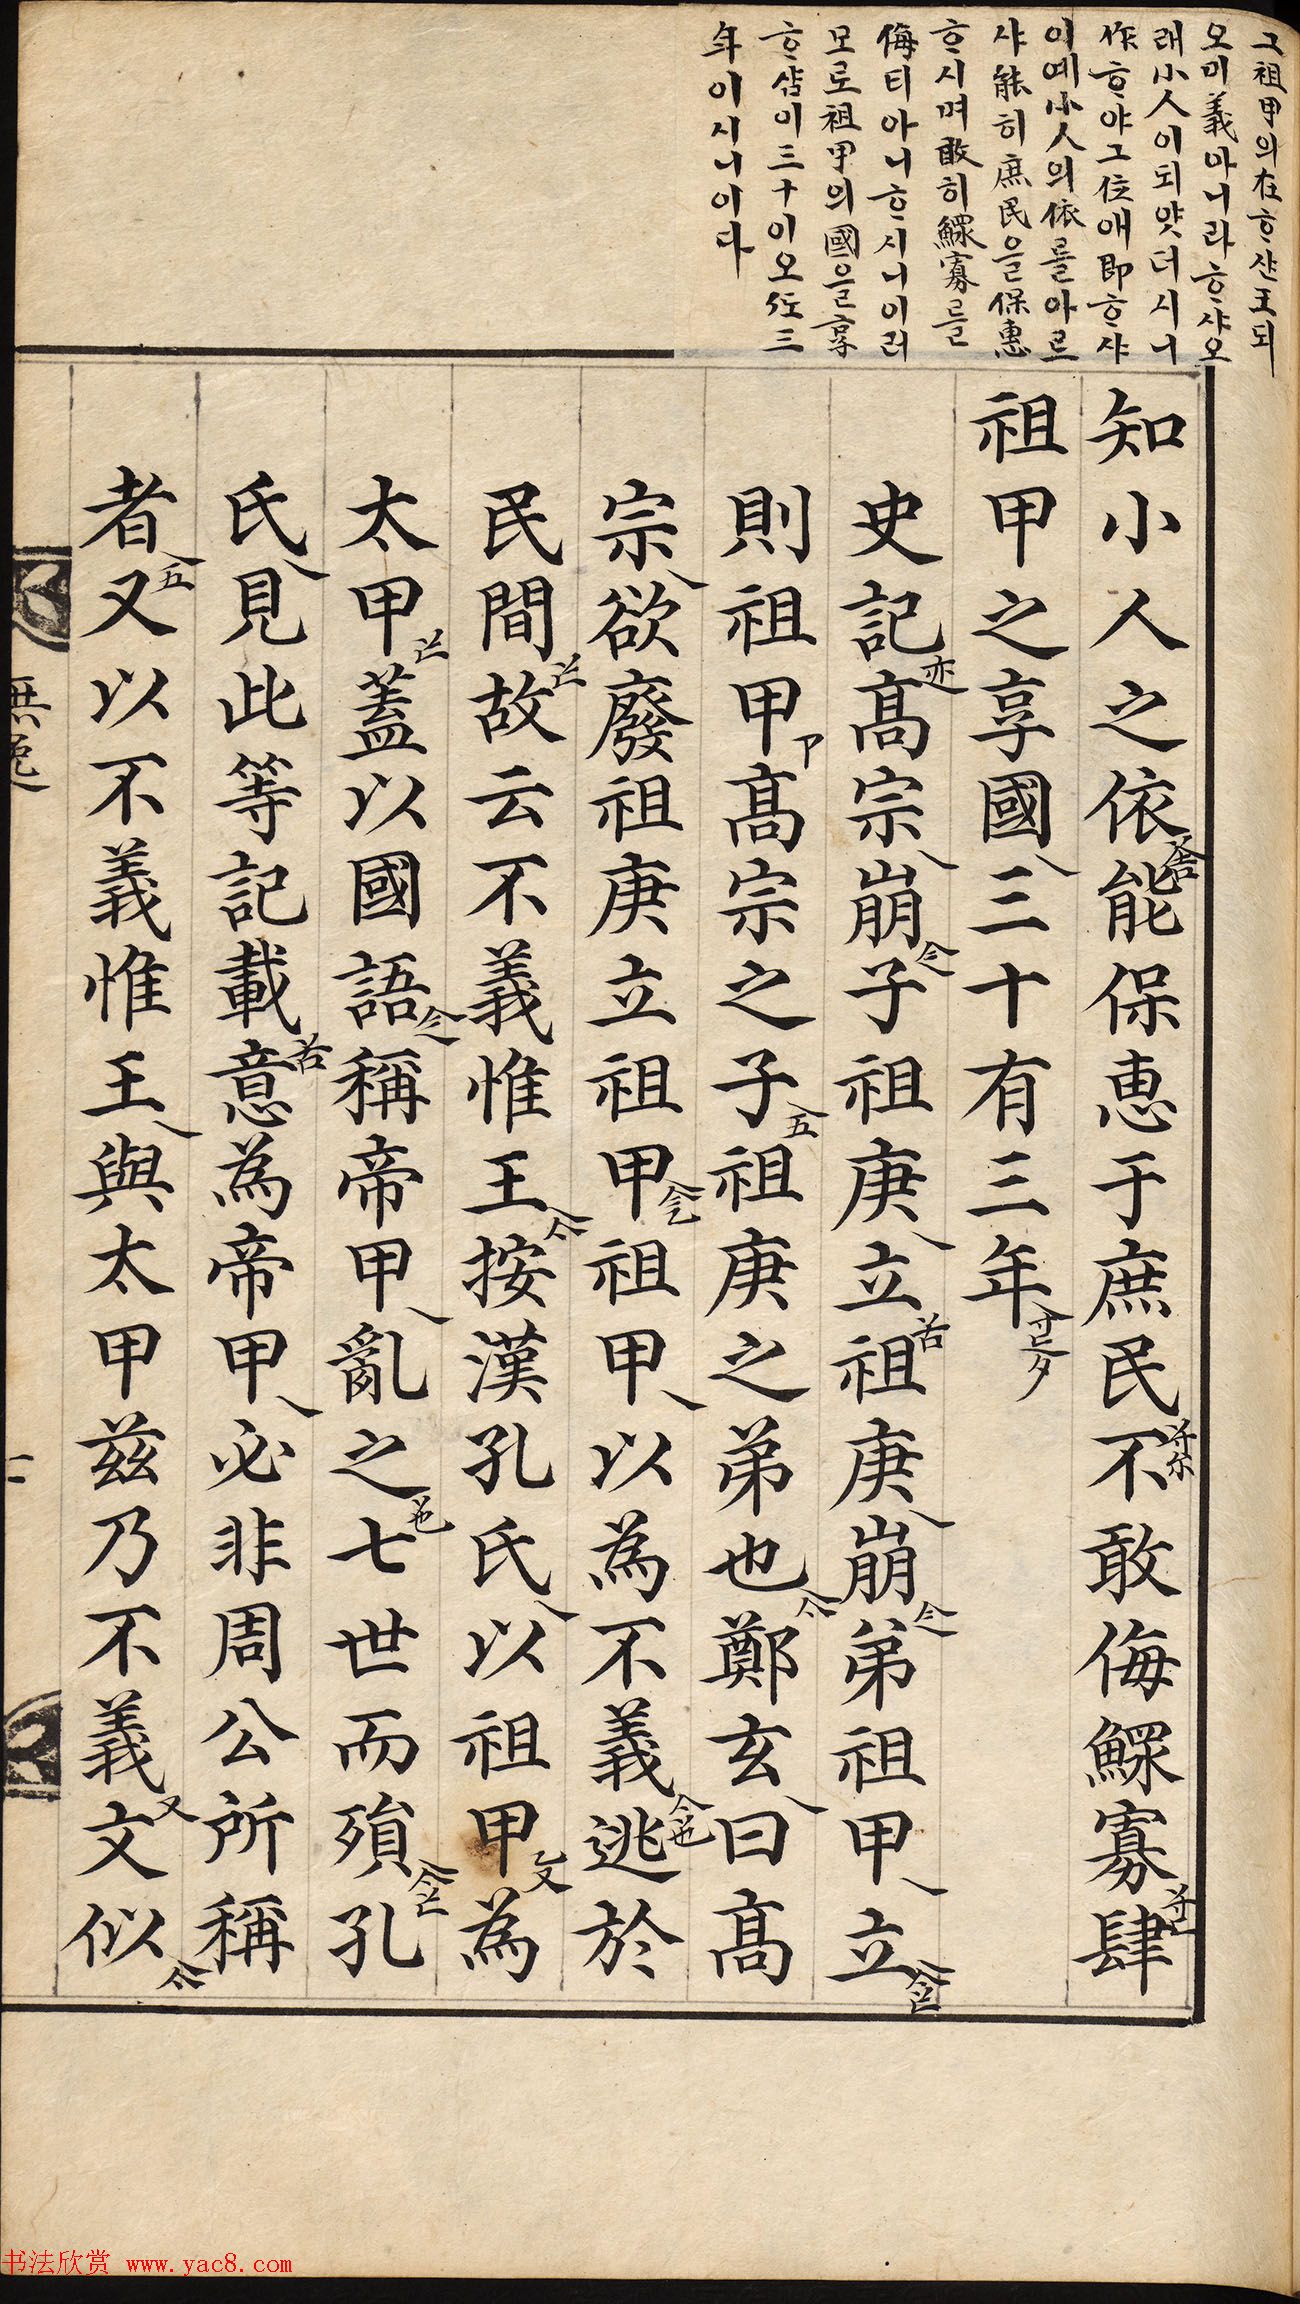 그祖甲의在ᄒᆞ샨王되
오미義아니라ᄒᆞ샤오
래小人이되얏더시니
作ᄒᆞ야그位애即ᄒᆞ샤
이예小人의依를아르
샤能히庶民을保惠
ᄒᆞ시며敢히鰥寡를
侮티아니ᄒᆞ시니이러
모로祖甲의國을享
ᄒᆞ샴이三十이오ᄯᅩ三
年이시니이다
知小人之依能保惠于庶民不敢侮鰥寡肆
祖甲之享國三十有三年
史記高宗崩子祖庚立祖庚崩弟祖甲立
則祖甲高宗之子祖庚之弟也鄭玄曰高
宗欲廢祖庚立祖甲祖甲以為不義逃於
民間故云不義惟王按漢孔氏以祖甲為
太甲蓋以國語稱帝甲亂之七世而殞孔
氏見此等記載意為帝甲必非周公所稱
者又以不義惟王與太甲茲乃不義文似
無逸
二
书法欣赏 www.yac8.com